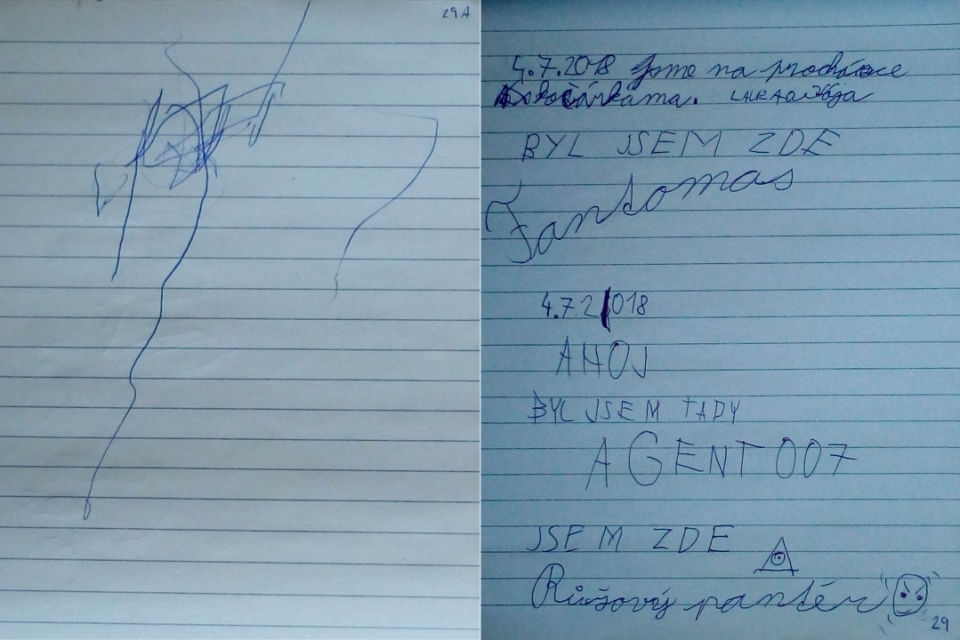 29A
4.7.2018 Jsme na procházce
s kočárkama.
BYL JSEM ZDE
Fantomas
4.7.2018
AHOJ
BYL JSEM TADY
AGENT 007
JSEM ZDE
Růžový pantér
29